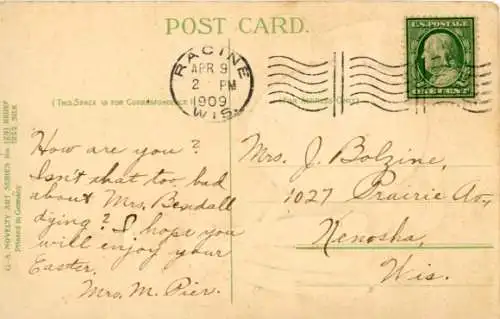 POST CARD.
RACINE
APR 9
2 PM
1909
WIS.
U.S. POSTAGE
ONE CENT
(THIS SPACE IS FOR CORRESPONDENCE
ADDRESS ONLY.)
G-A. NOVELTY ART SERIES No.
Printed in Germany
How are you?
Isn't that too bad
about Mrs. Bendall
dying? I hope you
will enjoy your
Easter.
Mrs. M. Pier.
Mrs. J. Bolzine,
1027 Prairie Av,
Kenosha,
Wis.